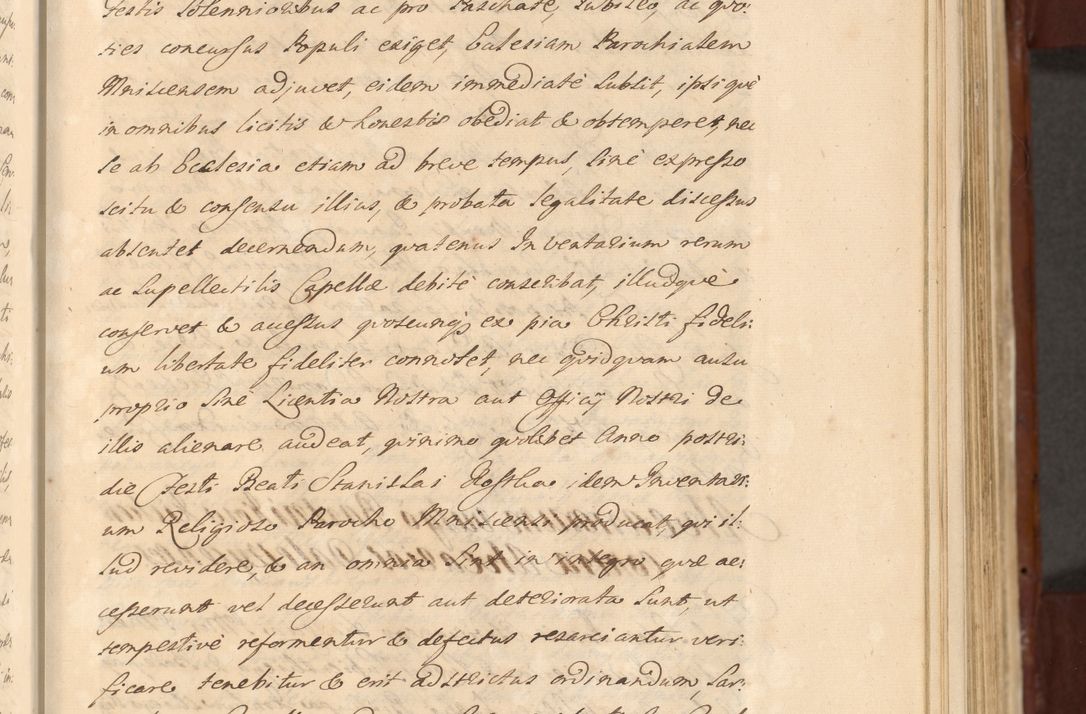 Festis Solennioribus ac pro Paschate, Jubileo, ac quo:
ties concursus Populi exiget, Ecclesiam Parochialem
Mniscensem adjuvet, eidem immediatè subsit, ipsiquè
in omnibus licitis & honestis obediat & obtemperet, nec
se ab Ecclesia etiam ad breve tempus, sinè expresso
scitu & consensu illius, & probata legalitate discessus
absentet decernendum, quatenus Inventarium rerum
ac supellectilis Capellæ debitè conscribat, illudquè
conservet & accessus quoscunq; ex pia Christi fideli:
um libertate fideliter connotet, nec quidquam ausu
proprio sinè Licentia Nostra aut Officij Nostri de
illis alienare audeat, quinimo quolibet Anno postri:
die Festi Beati Stanislai Kostka idem Inventari:
um Religioso Parocho Mniscensi producat, qui il:
lud revidere, & an omnia sint in integro quæ ac:
cesserunt vel decesserunt aut deteriorata sunt, ut
tempestivè reformentur & defectus resarciantur veri:
ficare tenebitur & erit adstrictus ordinandum, Sar: